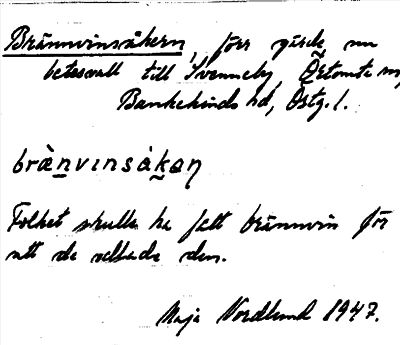 Brännvinsåkern, förr gärde, nu
betesvall till Svenneby, Östomta sn,
Bankekinds hd, Östg. l.
brä̀nvinsåkaɳ
Folket skulle ha fått brännvin för
att de odlade den.
Maja Nordlund 1947.